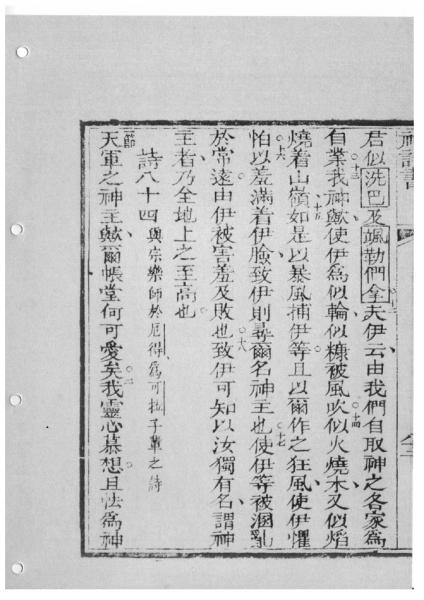 神詩書
君似洗巴及颯勒們全夫伊云由我們自取神之各家為
自業我神歟使伊為似輪似糠被風吹似火燒木又似焰
燒着山嶺如是以暴風捕伊等且以爾作之狂風使伊懼
怕以羞滿着伊臉致伊則尋爾名神主也使伊等被溷亂
於常遠由伊被害羞及敗也致伊可知以汝獨有名謂神
主者乃全地上之至高也
詩八十四與宗樂師於厄得為可拉子輩之詩
一節
天軍之神主歟爾帳堂何可愛矣我靈心慕想且怯為神